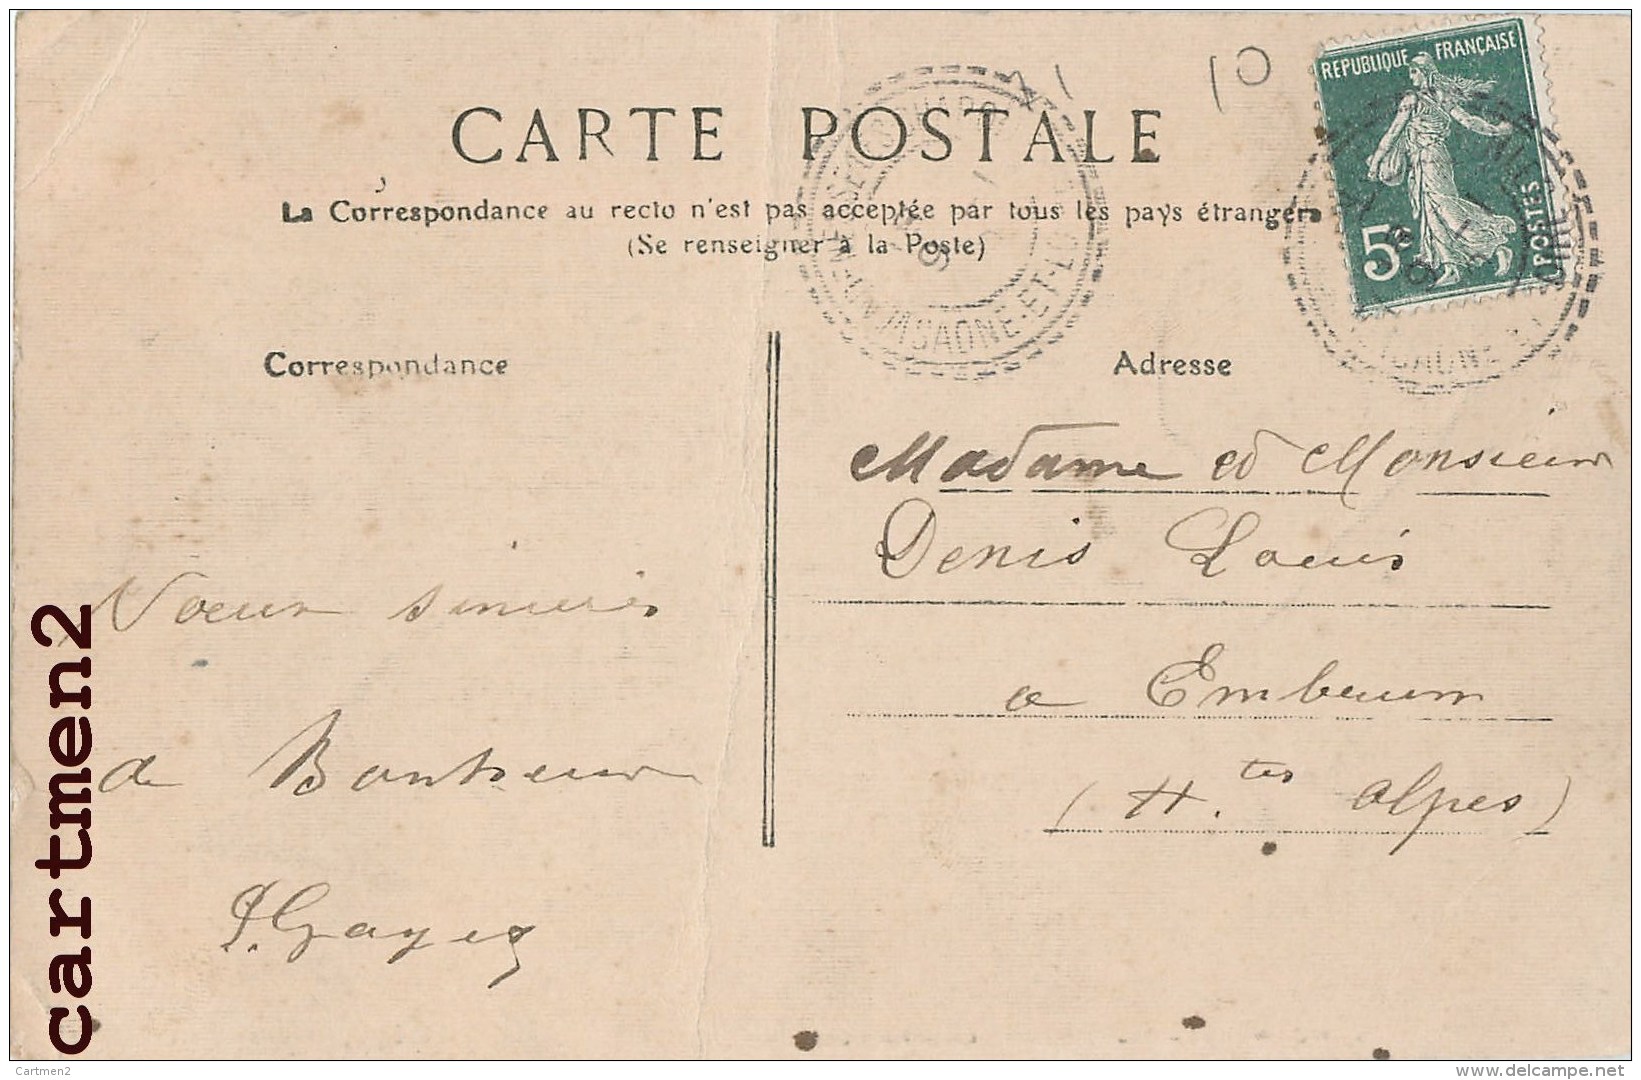 CARTE POSTALE
La Correspondance au recto n'est pas acceptée par tous les pays étrangers
(Se renseigner à la Poste)
10
REPUBLIQUE FRANÇAISE
5c
POSTES
SAONE-ET-LOIRE
Correspondance
Voeux sincères
de Bonheur
Adresse
Madame et Monsieur
Denis Louis
a Embrun
(Htes Alpes)
cartmen2
Cartmen2
www.delcampe.net